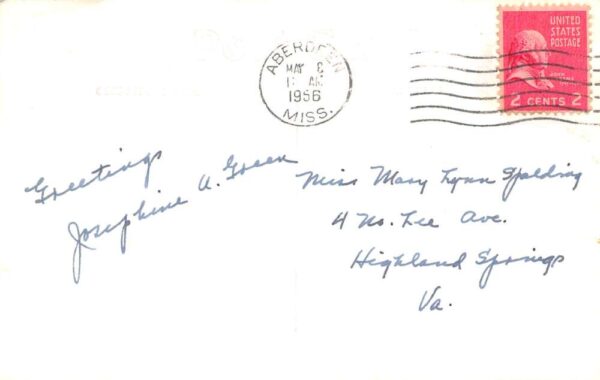 ABERDEEN
MAY
AM
1956
MISS.
UNITED
STATES
POSTAGE
JOHN
2 CENTS 2
Greetings
Josephine A. Green
Miss Mary Lynn Spalding
4 No. Lee Ave.
Highland Springs
Va.